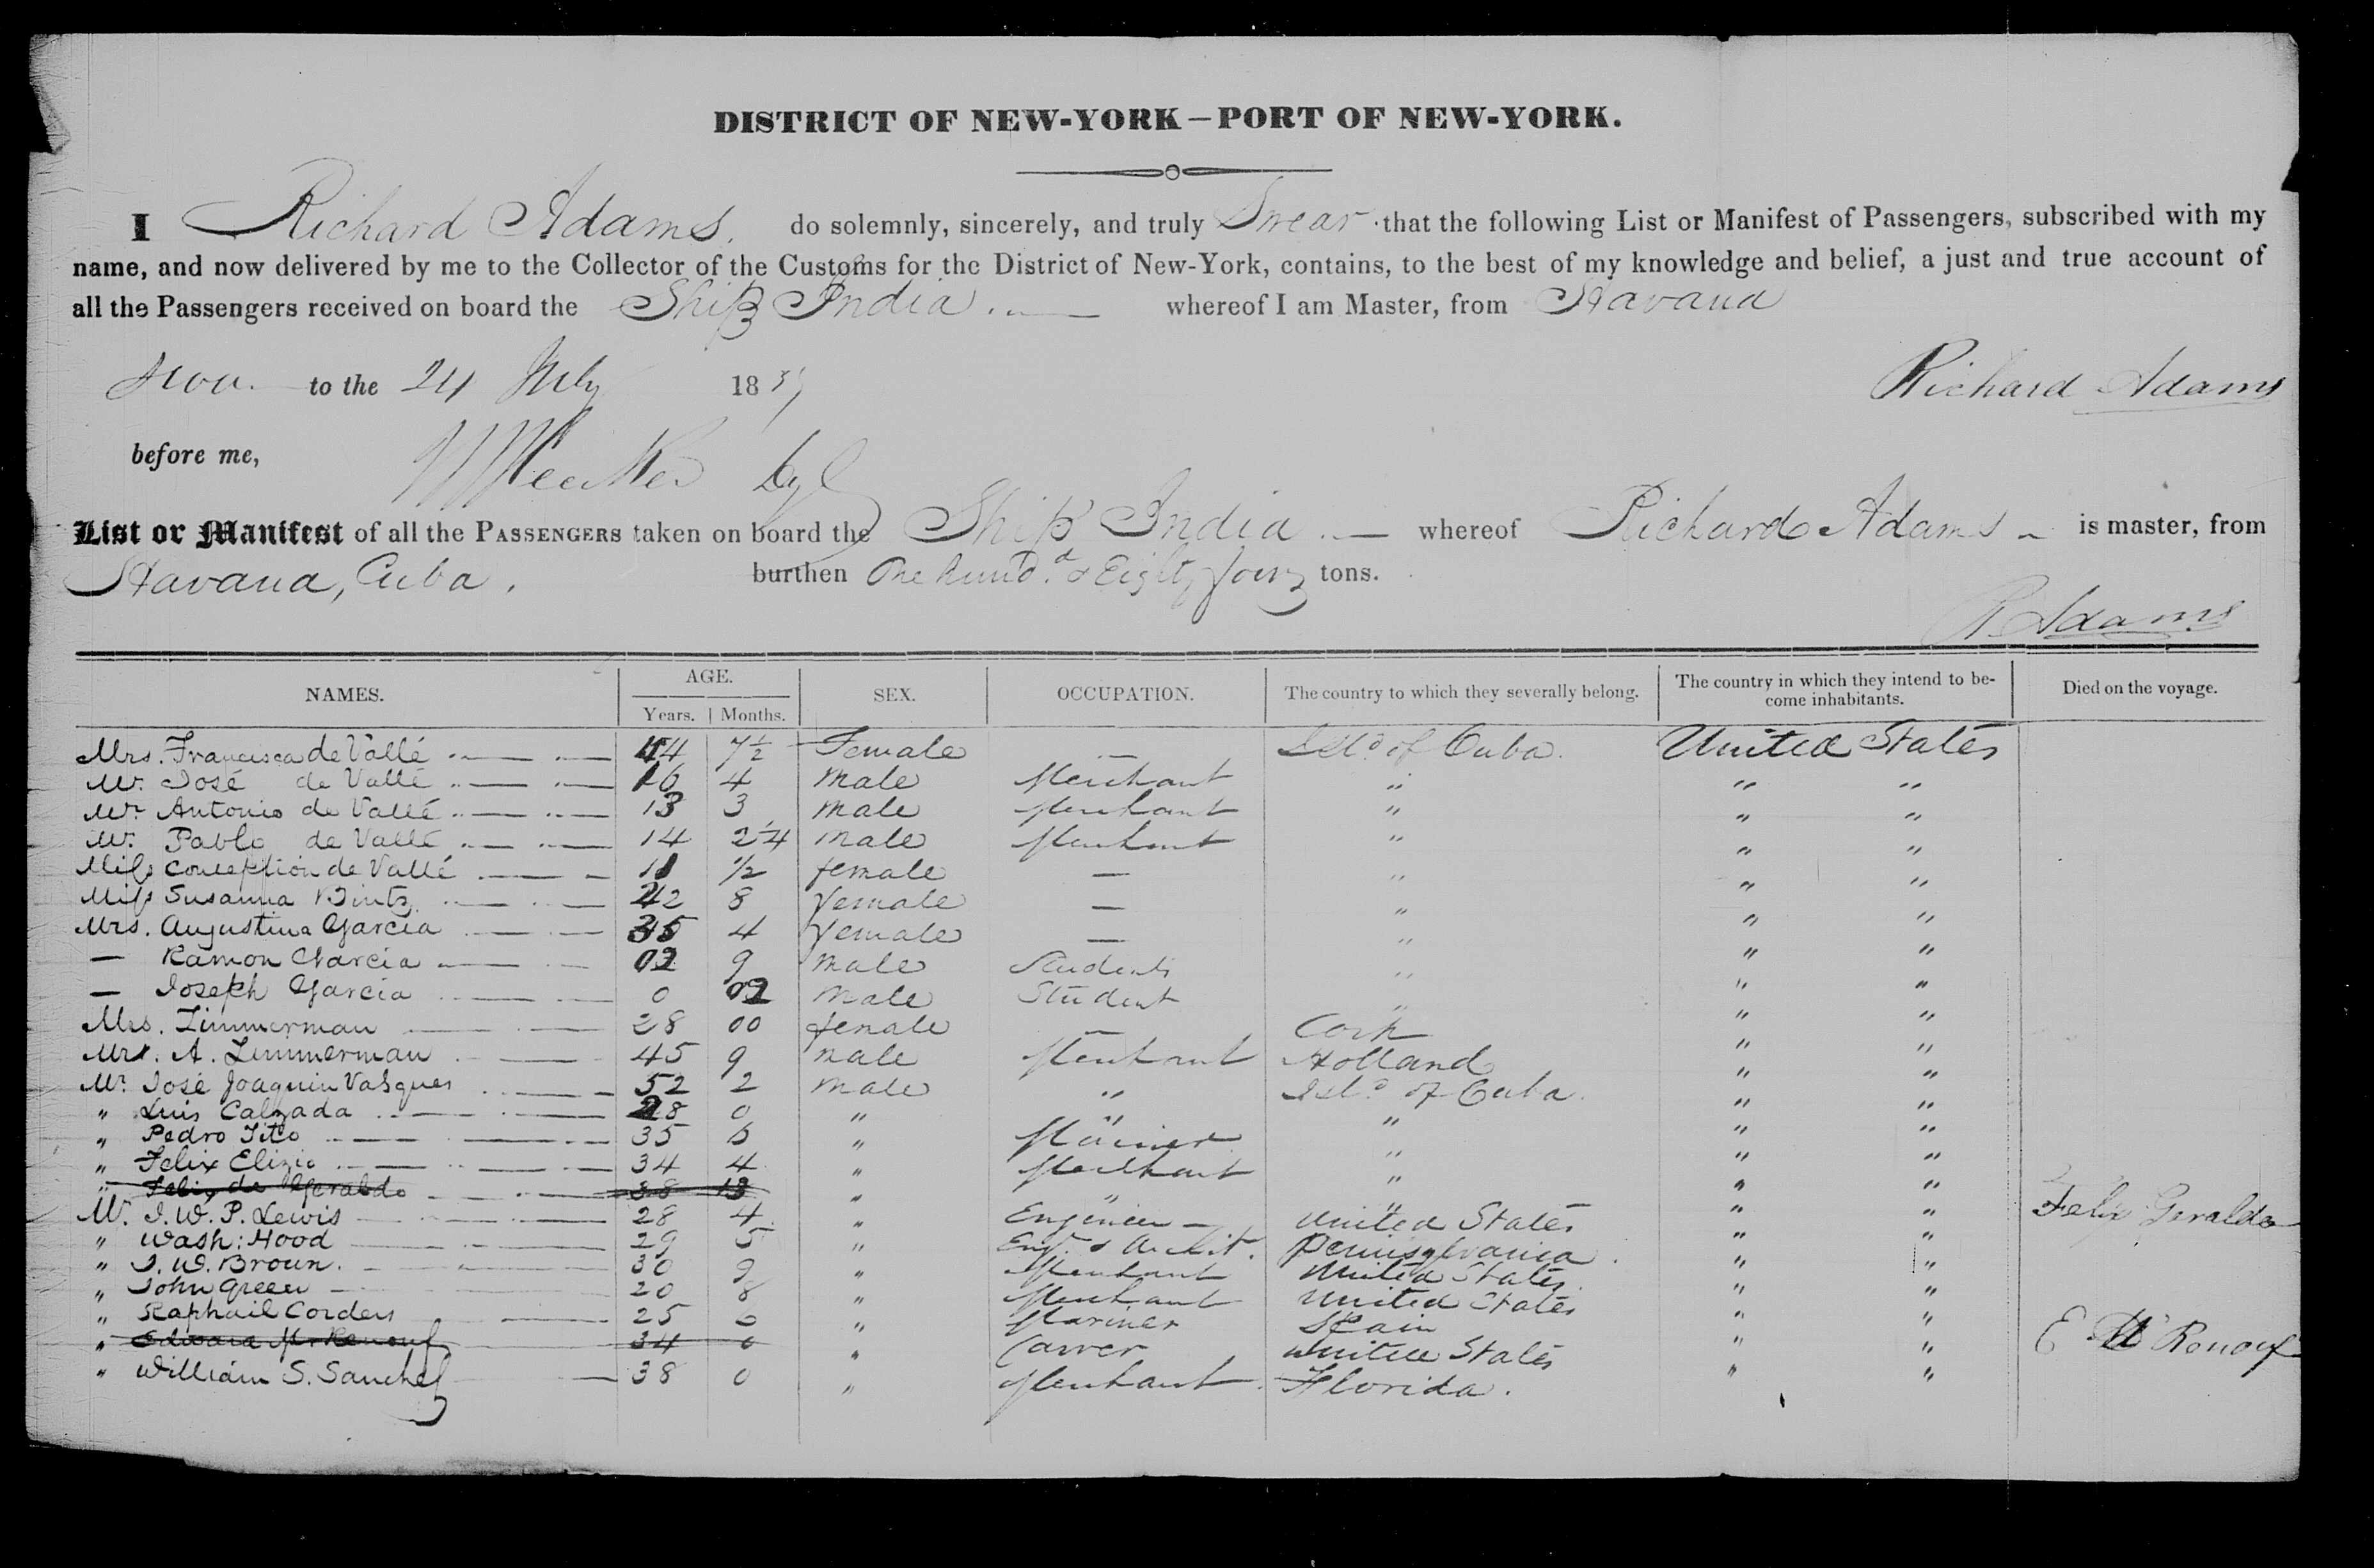 DISTRICT OF NEW-YORK—PORT OF NEW-YORK.
I Richard Adams. do solemnly, sincerely, and truly Swear that the following List or Manifest of Passengers, subscribed with my
name, and now delivered by me to the Collector of the Customs for the District of New-York, contains, to the best of my knowledge and belief, a just and true account of
all the Passengers received on board the Ship India. whereof I am Master, from Havana
to the 24 July 18 Richard Adams
before me,
List or Manifest of all the PASSENGERS taken on board the Ship India whereof Richard Adams is master, from
Havana, Cuba. burthen One Hund.d & Eighty four tons.
R. Adams
NAMES. AGE. SEX. OCCUPATION. The country to which they severally belong. The country in which they intend to be- Died on the voyage.
Years. Months. come inhabitants.
Mrs. Francisca de Vallé 44 7½ Female — Isld of Cuba. United States
Mr. José de Vallé 16 4 male Merchant " " "
Mr. Antonio de Vallé 13 3 male Merchant " " "
Mr. Pablo de Vallé 14 2¼ male Merchant " " "
Miss Conception de Vallé 11 ½ female — " " "
Miss Susanna 42 8 female — " " "
Mrs. Augustina Garcia 35 4 female — " " "
— Ramon Garcia 02 9 male Student " " "
— Joseph Garcia 0 02 male Student " " "
Mrs. Zimmerman 28 00 female — Cork " "
Mr. A. Zimmerman 45 9 male Merchant Holland " "
Mr. José Joaquin Vasques 52 2 male " Isld of Cuba. " "
" Luis Calzada 28 0 " " " " "
" Pedro Tito 35 6 " Mariner " " "
" Felix Elizio 34 4 " Merchant " " "
" Felix de Geraldo 38 13 " " " " " Felix Geraldo
Mr. I. W. P. Lewis 28 4 " Engineer — United States " "
" Wash: Hood 29 5 " Engr. & Archit. Pennsylvania. " "
" J. W. Brown. 30 9 " Merchant United States " "
" John Green 20 8 " Merchant United States " "
" Raphail Corders 25 6 " Mariner Spain " "
" Edward Renouf 34 0 " Carver United States " " E W Renouf
" William S. Sanchez 38 0 " Merchant. Florida. " "